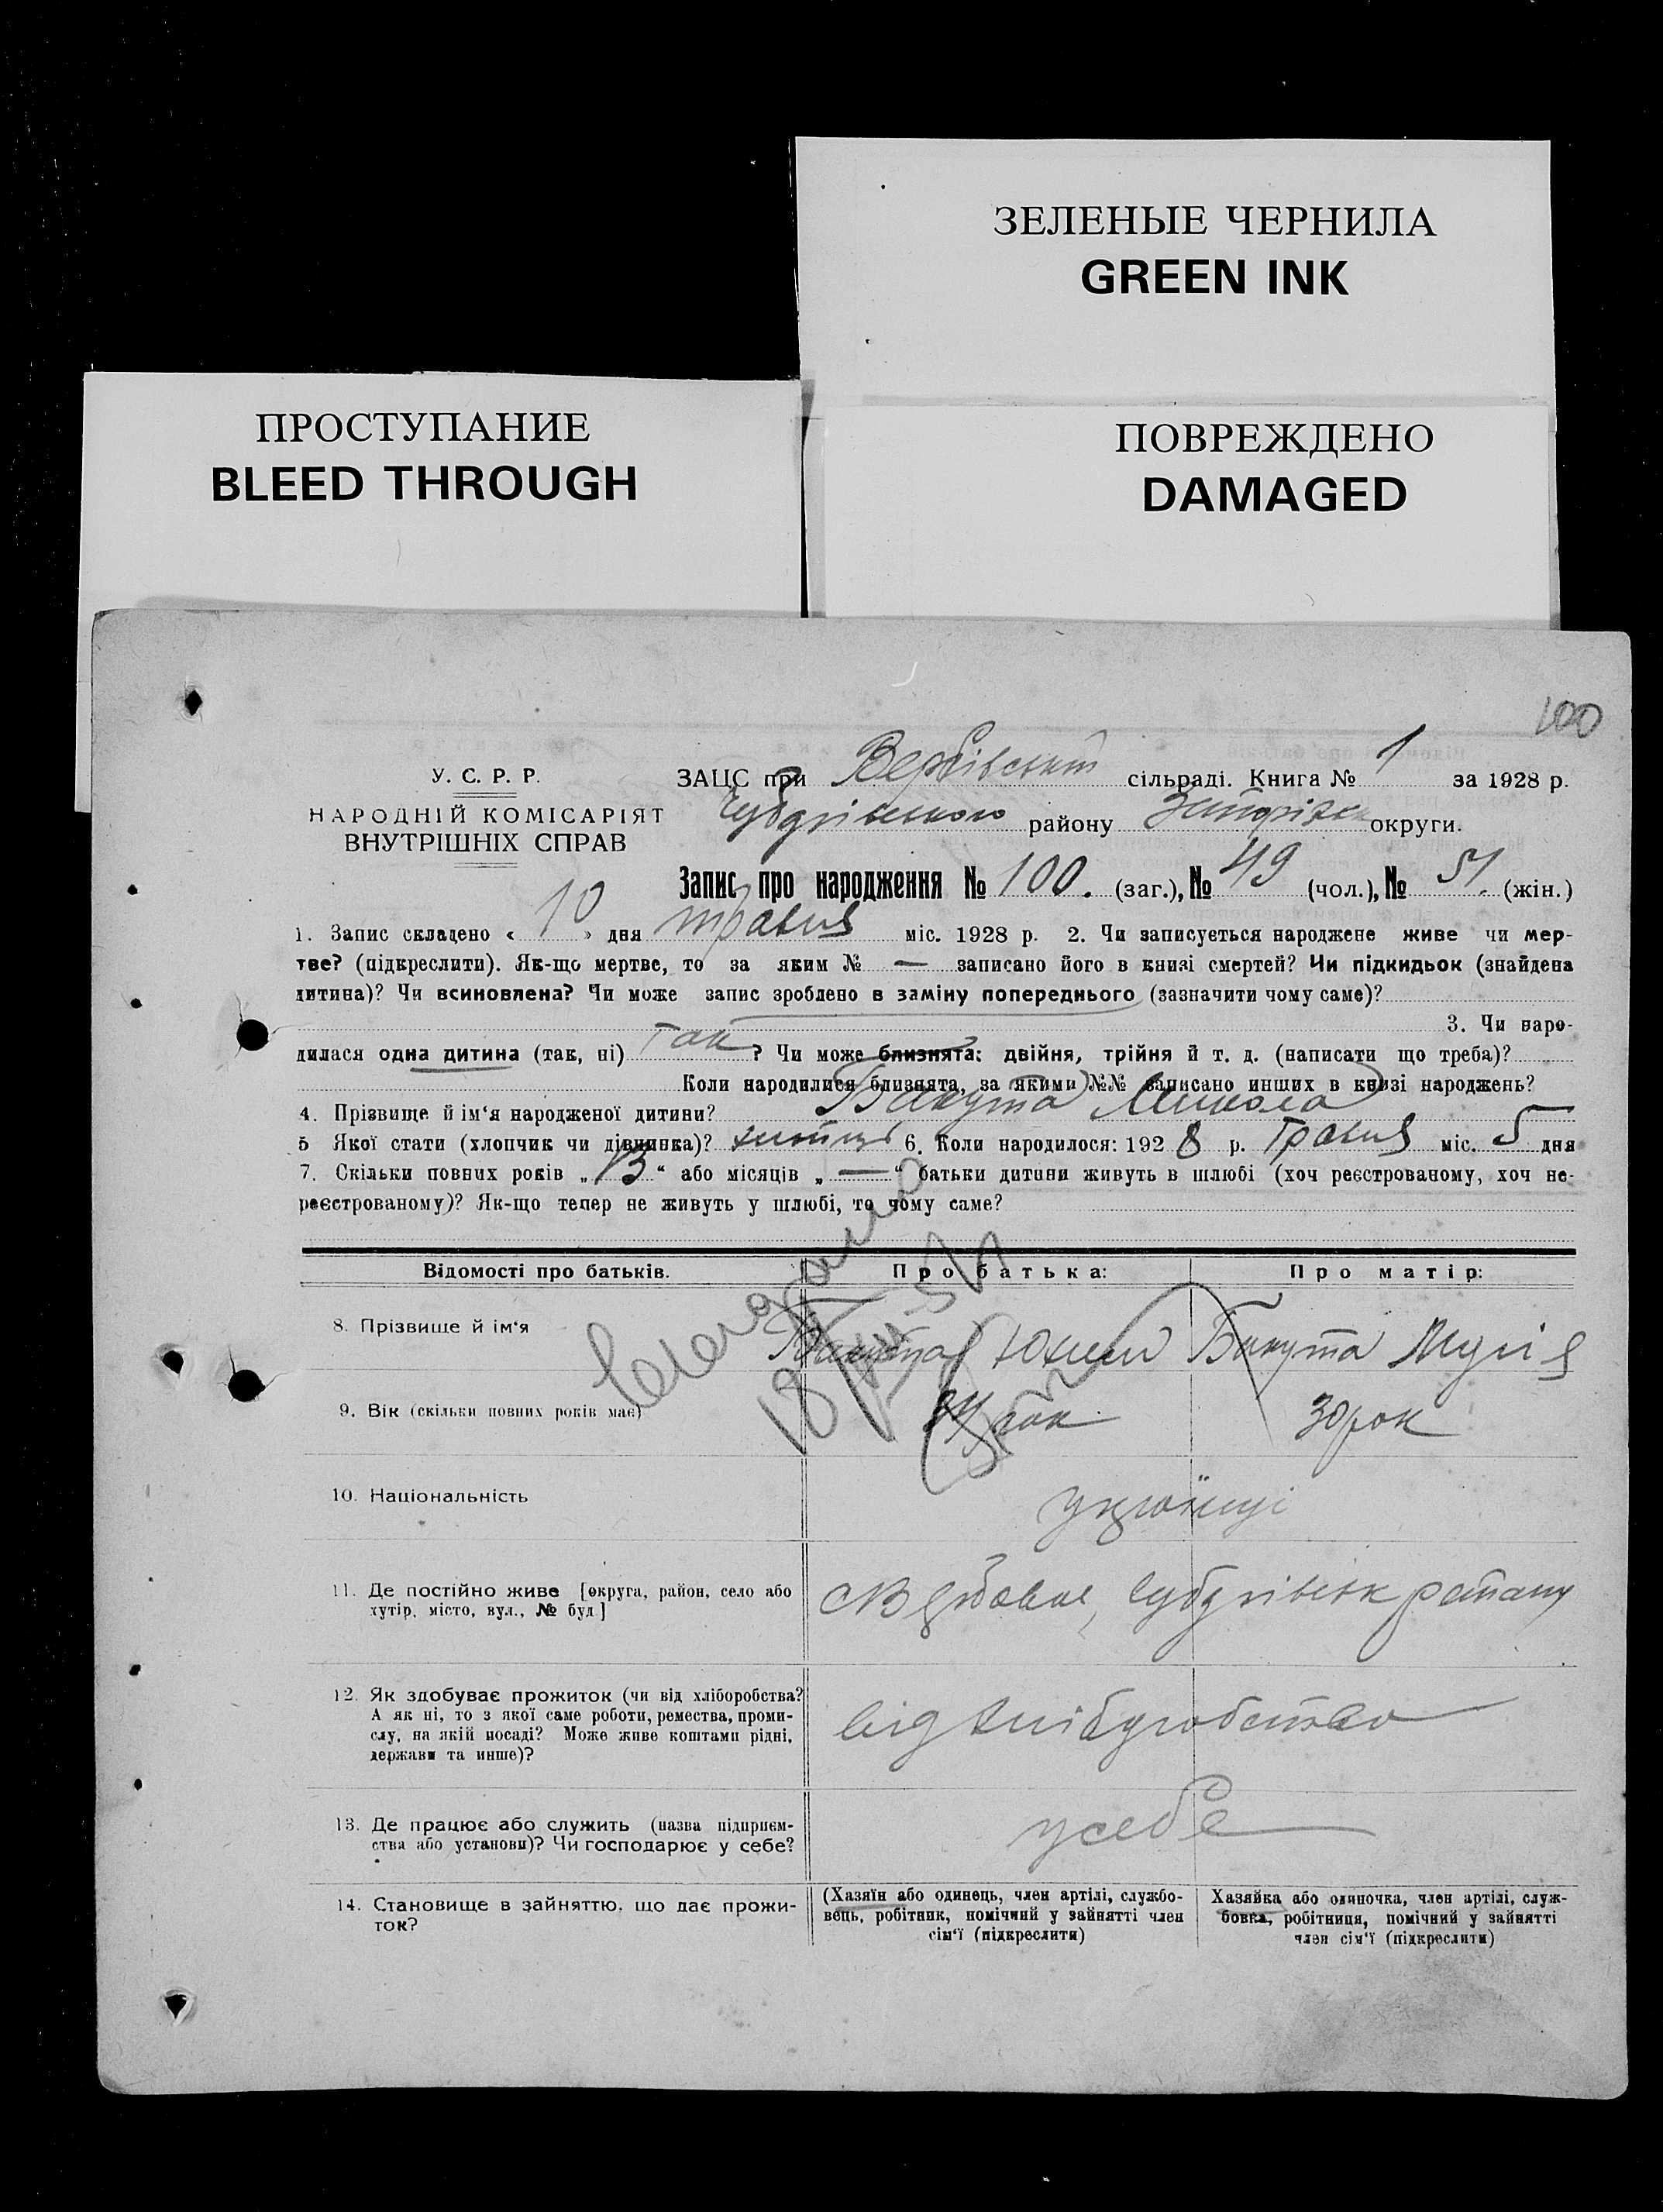 ЗЕЛЕНЫЕ ЧЕРНИЛА
GREEN INK
ПРОСТУПАНИЕ
BLEED THROUGH
ПОВРЕЖДЕНО
DAMAGED
100
У. С. Р. Р.
НАРОДНІЙ КОМІСАРІЯТ
ВНУТРІШНІХ СПРАВ
ЗАЦС при Вербівській сільраді. Книга № 1 за 1928 р.
району округи.
Запис про народження № 100. (заг.), № 49 (чол.), № 51. (жін.)
1. Запис складено « 10 » дня травня міс. 1928 р. 2. Чи записується народжене живе чи мер-
тве? (підкреслити). Як-що мертве, то за яким № — записано його в книзі смертей? Чи підкидьок (знайдена
дитина)? Чи всиновлена? Чи може запис зроблено в заміну попереднього (зазначити чому саме)?
3. Чи наро-
дилася одна дитина (так, ні) так ? Чи може близнята: двійня, трійня й т. д. (написати що треба)?
Коли народилися близнята, за якими №№ записано инших в книзі народжень?
4. Прізвище й ім‘я народженої дитини? Бакута Микола
5 Якої стати (хлопчик чи дівчинка)? 6. Коли народилося: 1928 р. Травня міс. 5 дня
7. Скільки повних років „13“ або місяців „—“ батьки дитини живуть в шлюбі (хоч реєстрованому, хоч не-
реєстрованому)? Як-що тепер не живуть у шлюбі, то чому саме?
Відомості про батьків. Про батька: Про матір:
8. Прізвище й ім‘я Бакута Юхим Бакута
9. Вік (скільки повних років має) рок 30 рок
10. Національність українці
11. Де постійно живе [округа, район, село або
хутір, місто, вул., № буд.]
12. Як здобуває прожиток (чи від хліборобства?
А як ні, то з якої саме роботи, ремества, проми-
слу, на якій посаді? Може живе коштами рідні,
держави та инше)?
від хліборобства
13. Де працює або служить (назва підприєм-
ства або установи)? Чи господарює у себе?
у себе
14. Становище в зайняттю, що дає прожи-
ток?
(Хазяїн або одинець, член артілі, службо-
вець, робітник, помічний у зайнятті член
сім‘ї (підкреслити)
Хазяйка або одиночка, член артілі, служ-
бовка, робітниця, помічний у зайнятті
член сім‘ї (підкреслити)